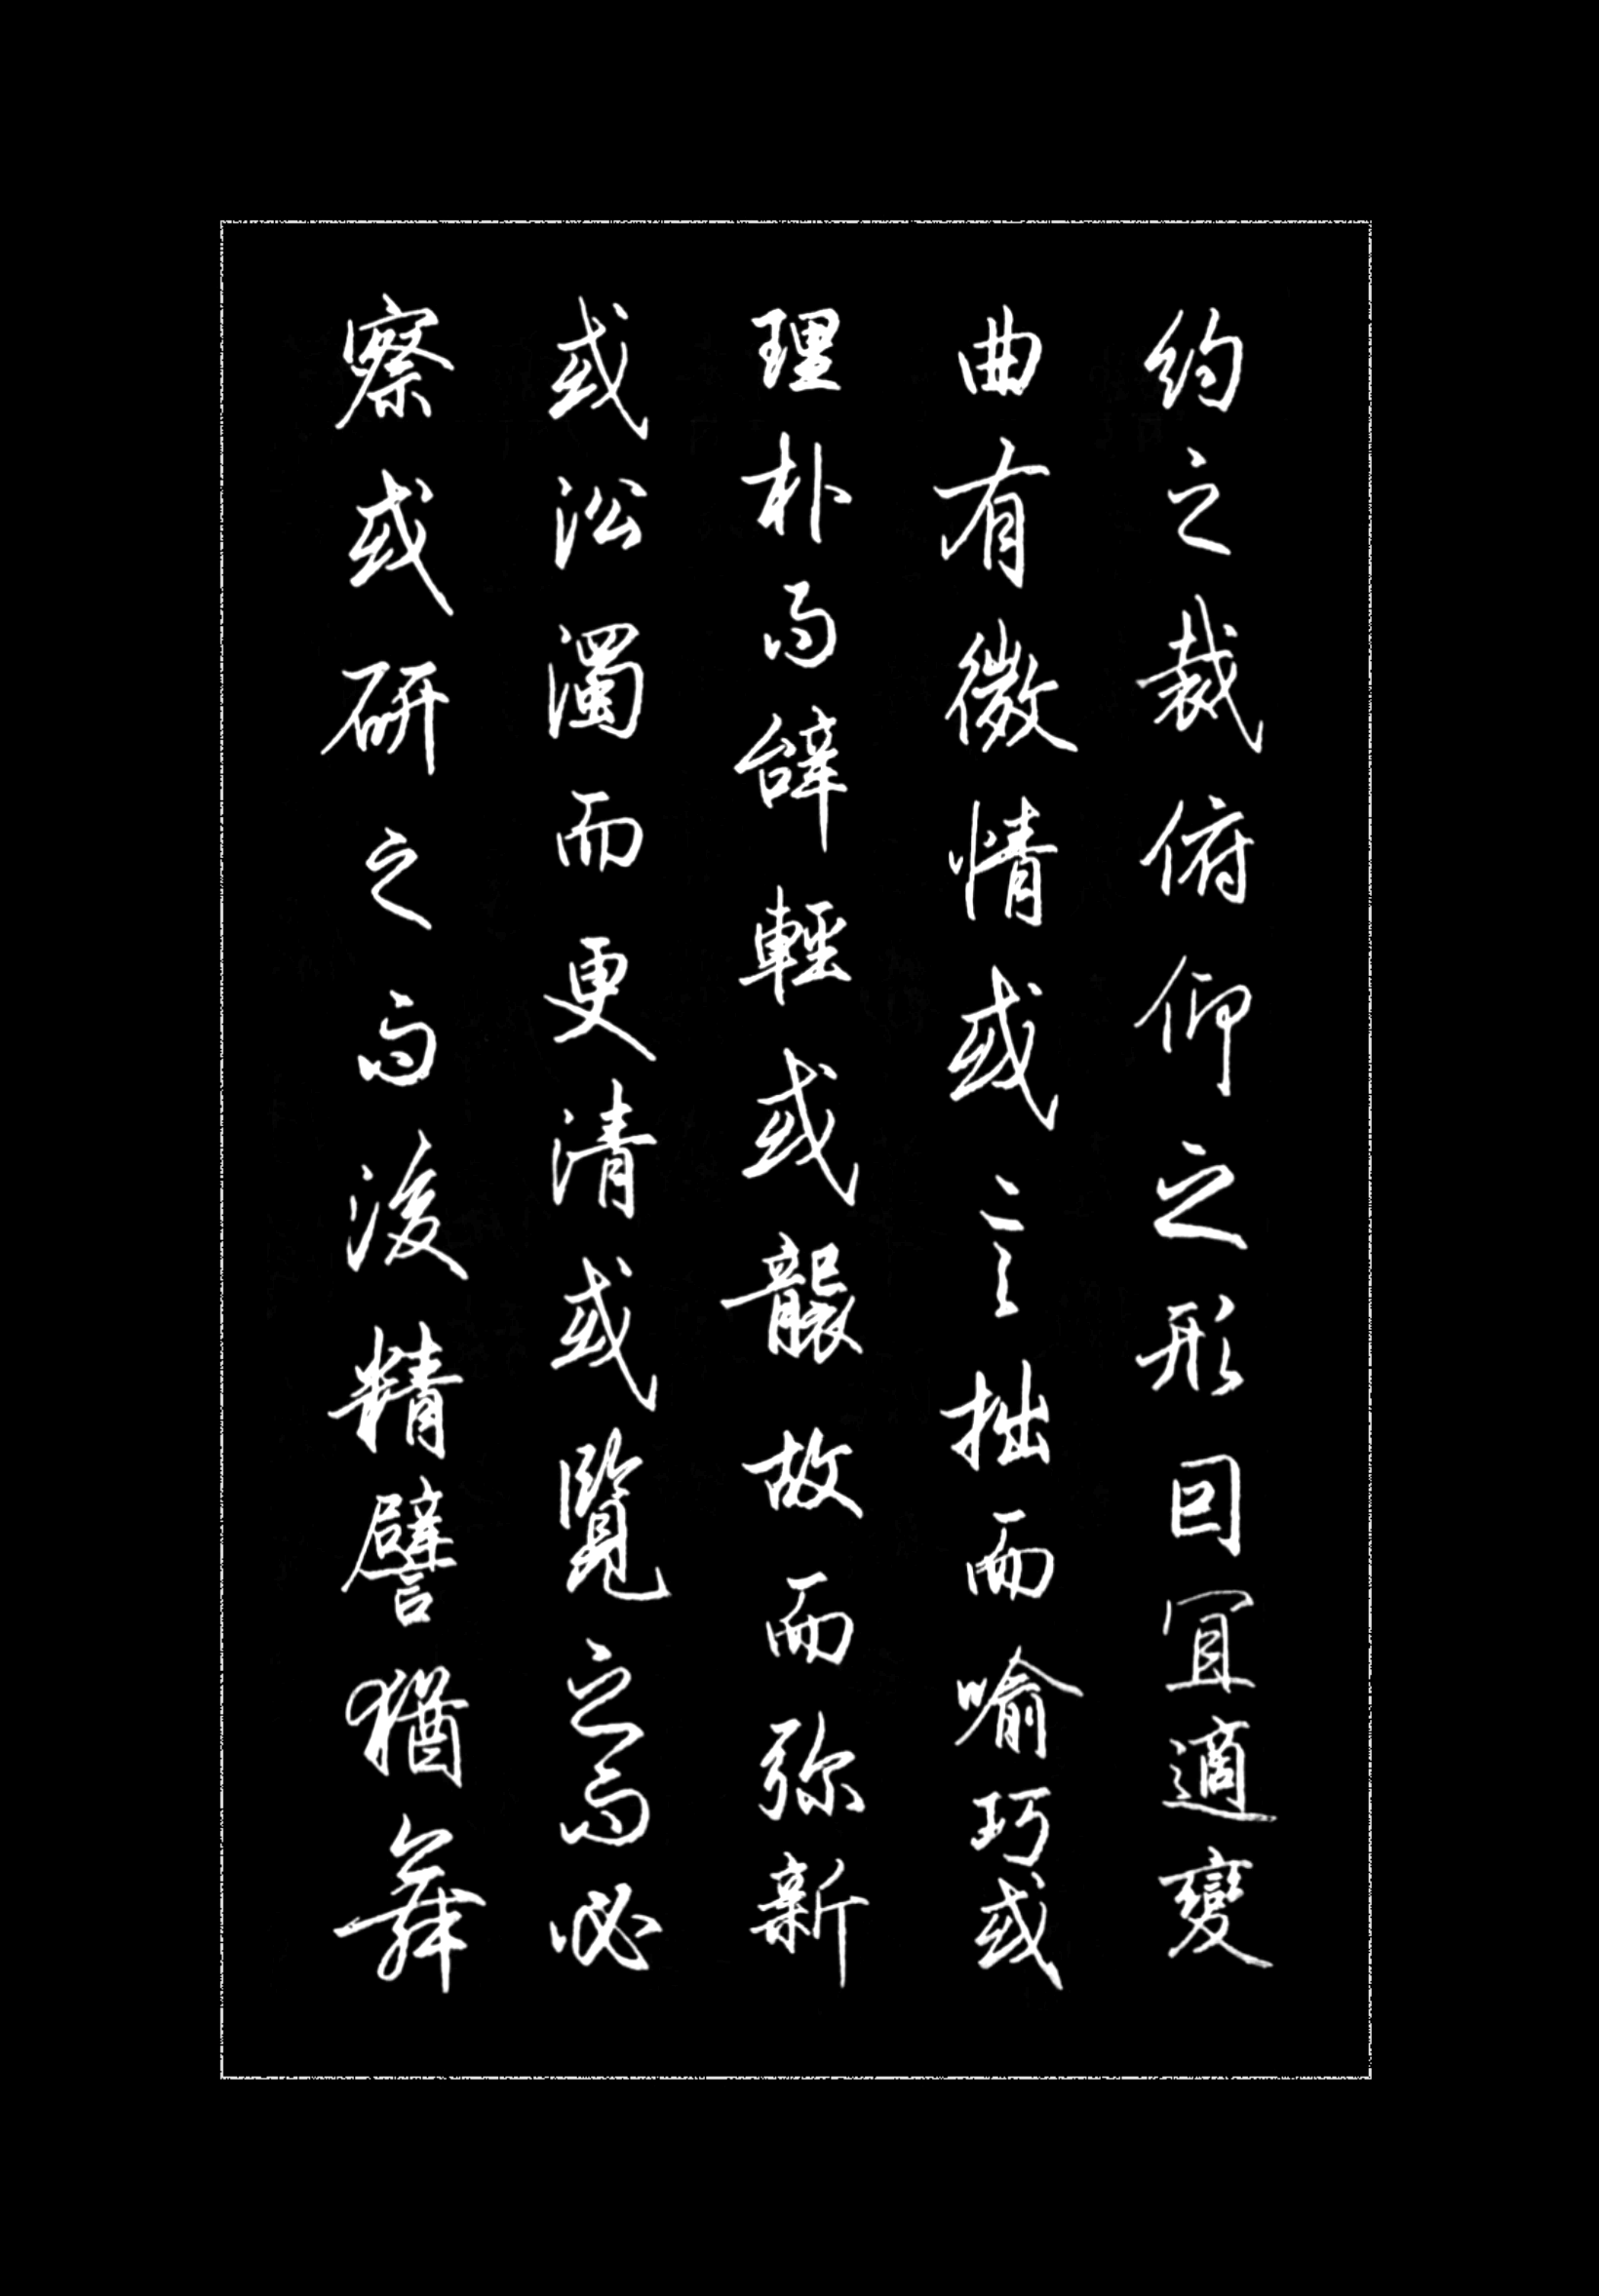 約之裁俯仰之形因宜適變
曲有微情或言拙而喻巧或
理朴而辝輕或襲故而弥新
或沿濁而更清或覽之而必
察或研之而後精譬猶舞